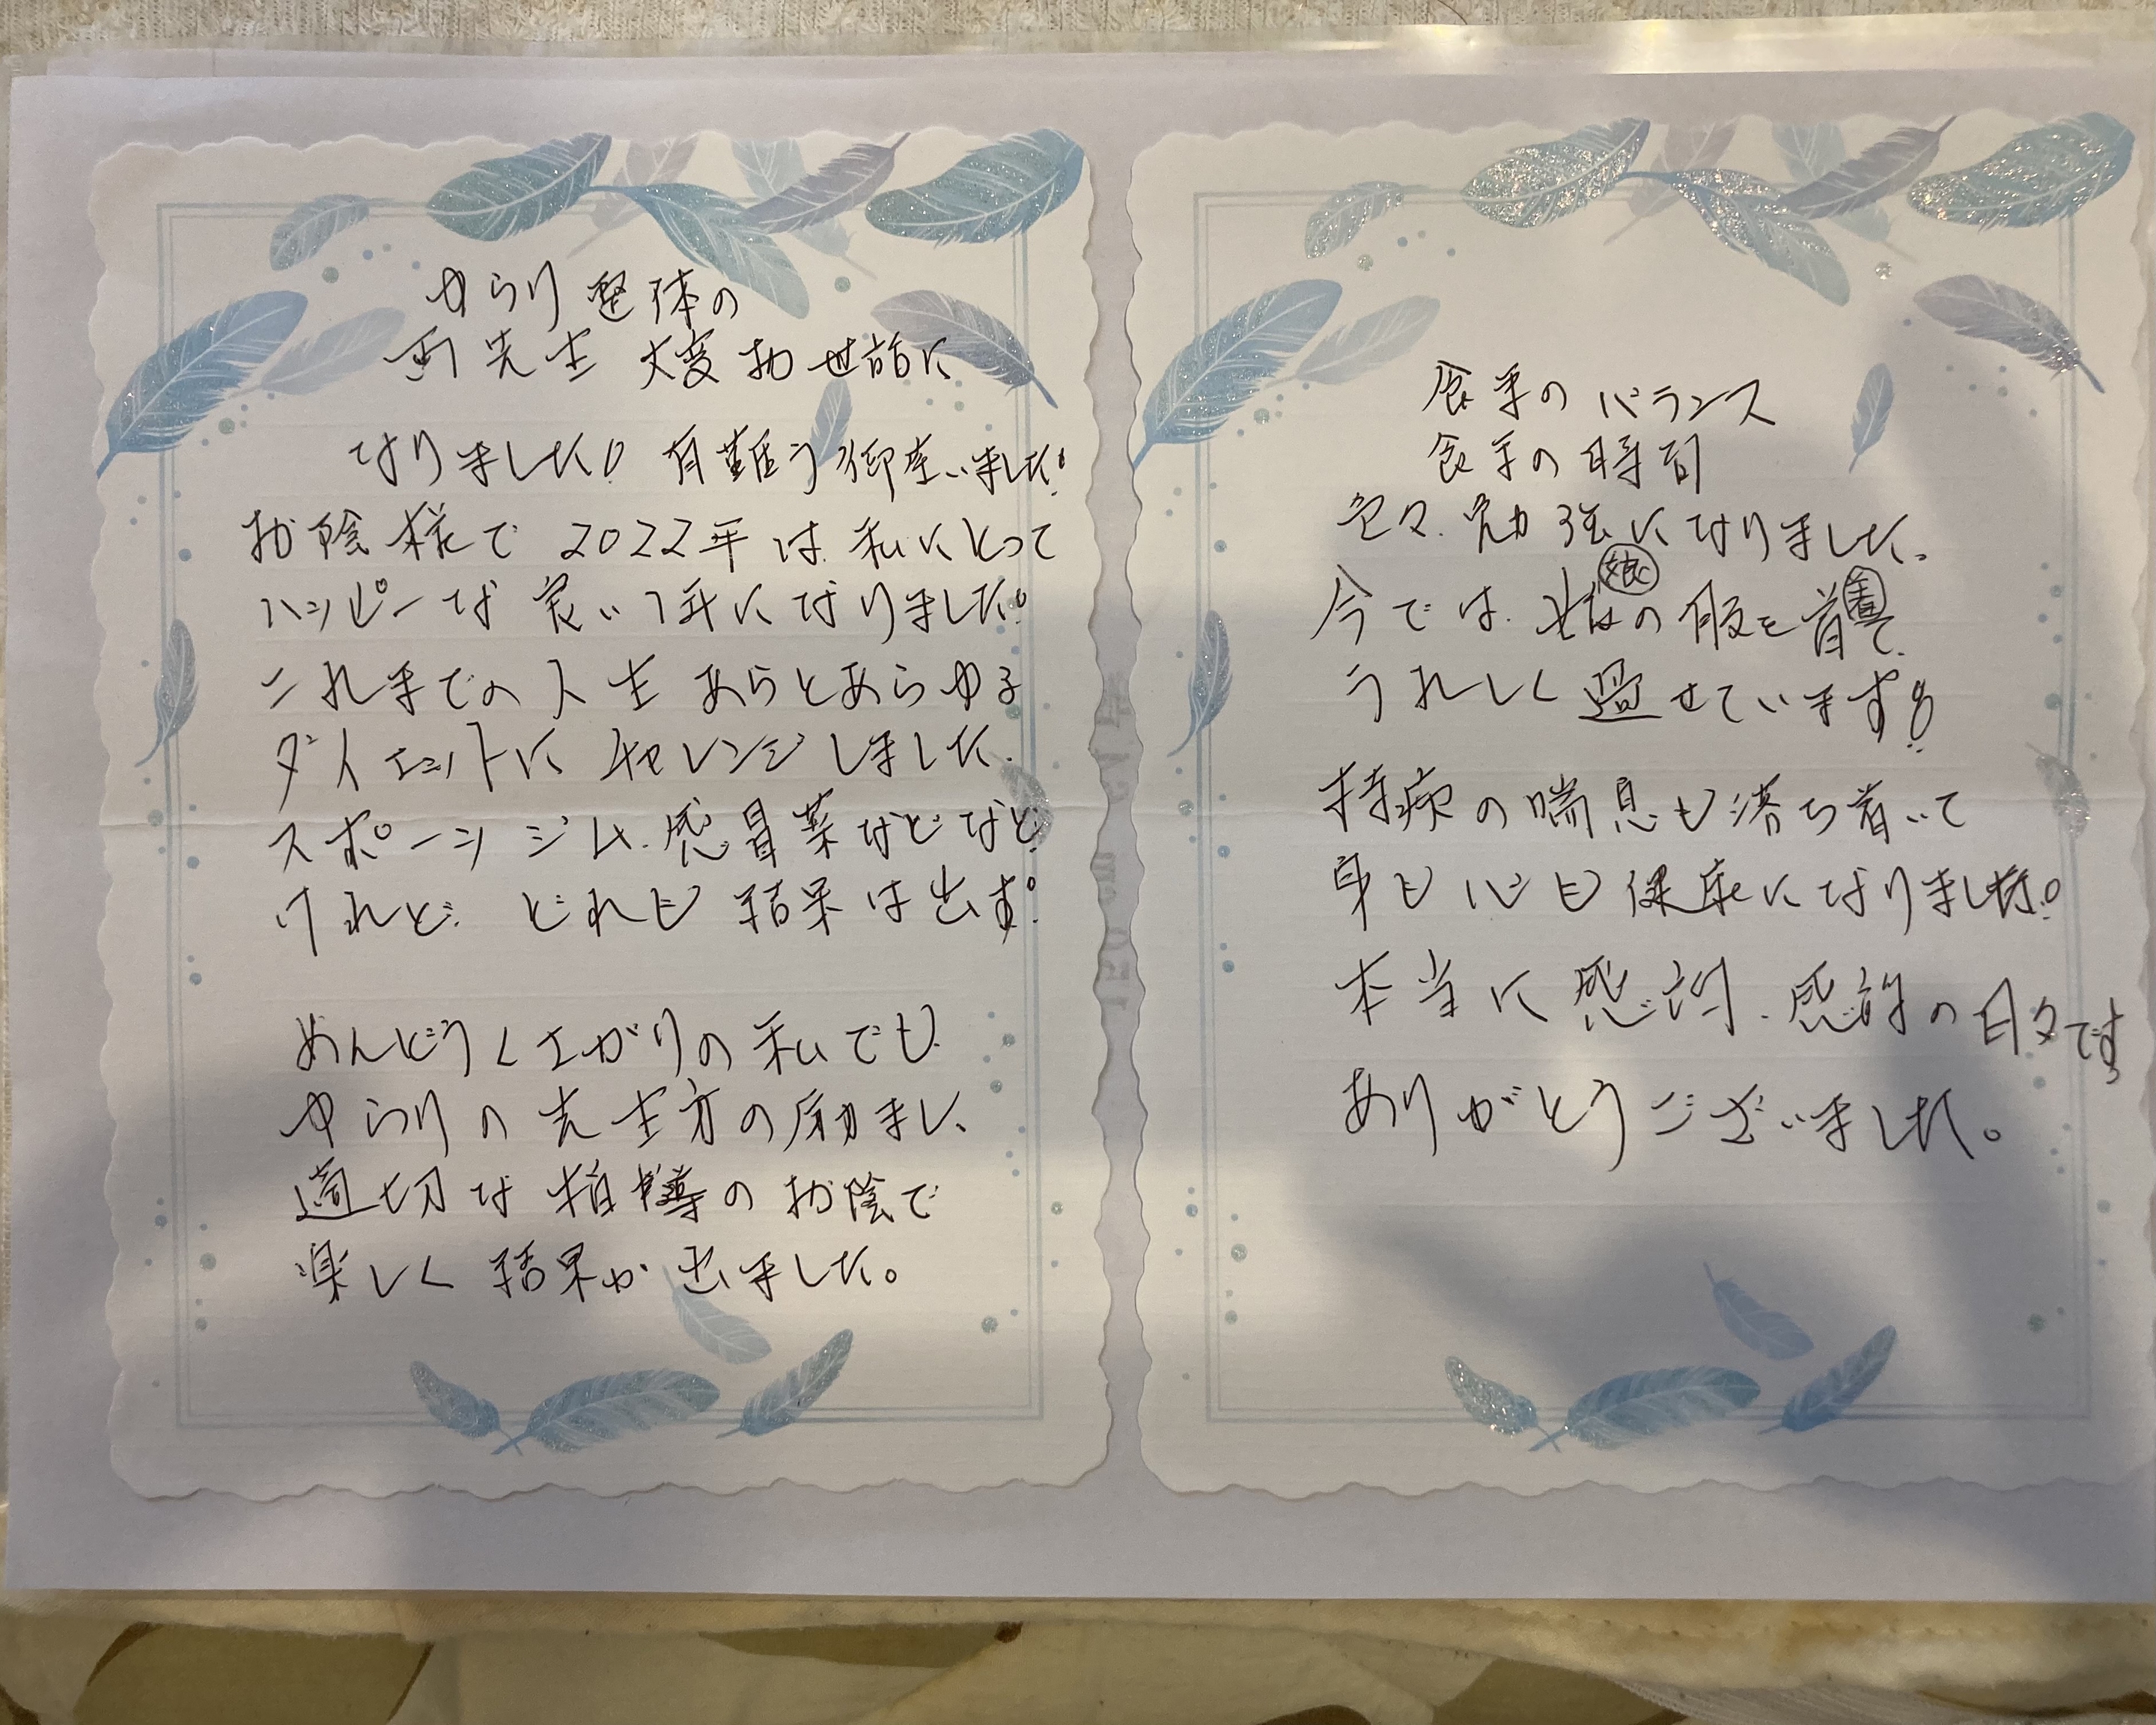 ゆらり整体の
両先生 大変お世話に
なりました! 有難う御座いました!
お陰様で 2022年は 私にとって
ハッピーな 良い 1年になりました!
これまでの人生 あらとあらゆる
ダイエットに チャレンジしました.
スポーツジム. 感冒薬などなど.
けれど. どれも 結果は出ず!
めんどうくさがりの私でも
ゆらりの先生方の励まし、
適切な指導のお陰で
楽しく 結果が 出ました。
食事のバランス
食事の時間
色々 勉強になりました.
今では 娘の服を着て
娘 着
うれしく 過せています!!
持病の喘息も落ち着いて
身も心も健康になりました!
本当に 感謝. 感謝の日々です
ありがとうございました。